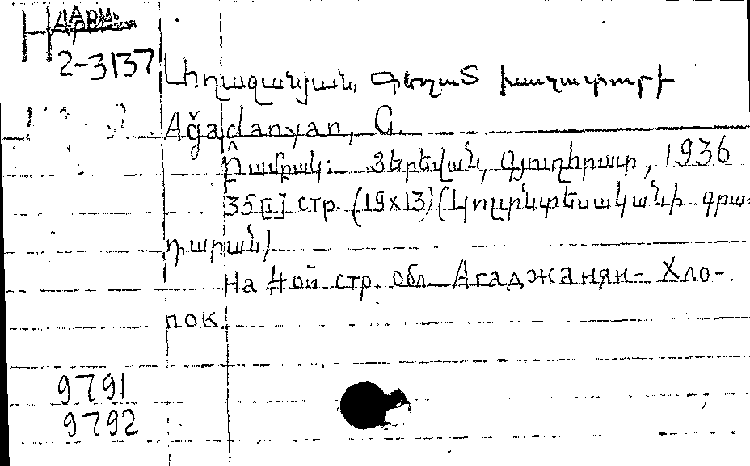 Н Дарм.
2-3137
Աղաջանյան, Գեղամ խաչատուրի
Ağaɖanyan, G.
Բամբակ: Յերեվան, Գյուղհրատ, 1936
35 [1] стр. (19x13) (Կոլտնտեսականի գրա-
դարան)
на 4ой стр. обл. Агаджанян- Хло-
пок.
9791
9792